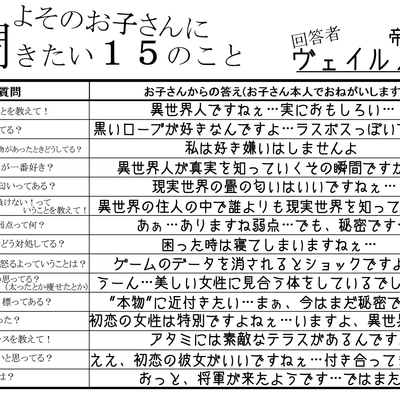 よそのお子さんに
聞きたい15のこと
回答者
帝
ヴェイル
質問
お子さんからの答え(お子さん本人でおねがいします
とを教えて!
異世界人ですねぇ…実におもしろい…
てる?
黒いローブが好きなんですよ…ラスボスっぽい
物があったときどうしてる?
私は好き嫌いはしませんよ
が一番好き?
異世界人が真実を知っていくその瞬間ですか
匂いってある?
現実世界の畳の匂いはいいですねぇ…
負けない!って
いうことを教えて!
異世界の住人の中で誰よりも現実世界を知って
弱点って何?
あぁ…ありますね弱点…でも、秘密です
どう対処してる?
困った時は寝てしまいますねぇ…
怒るよっていうことは?
ゲームのデータを消されるとショックですよ
思ってる?
(太ったとか痩せたとか)
うーん…美しい女性に見合う体をしているでし
標ってある?
"本物"に近付きたい…まぁ、今はまだ秘密で
った?
初恋の女性は特別ですよねぇ…いますよ、異世界
スを教えて!
アタミには素敵なテラスがあるんです
いと思ってる?
ええ、初恋の彼女がいいですねぇ…付き合って
は?
おっと、将軍が来たようです…ではまた